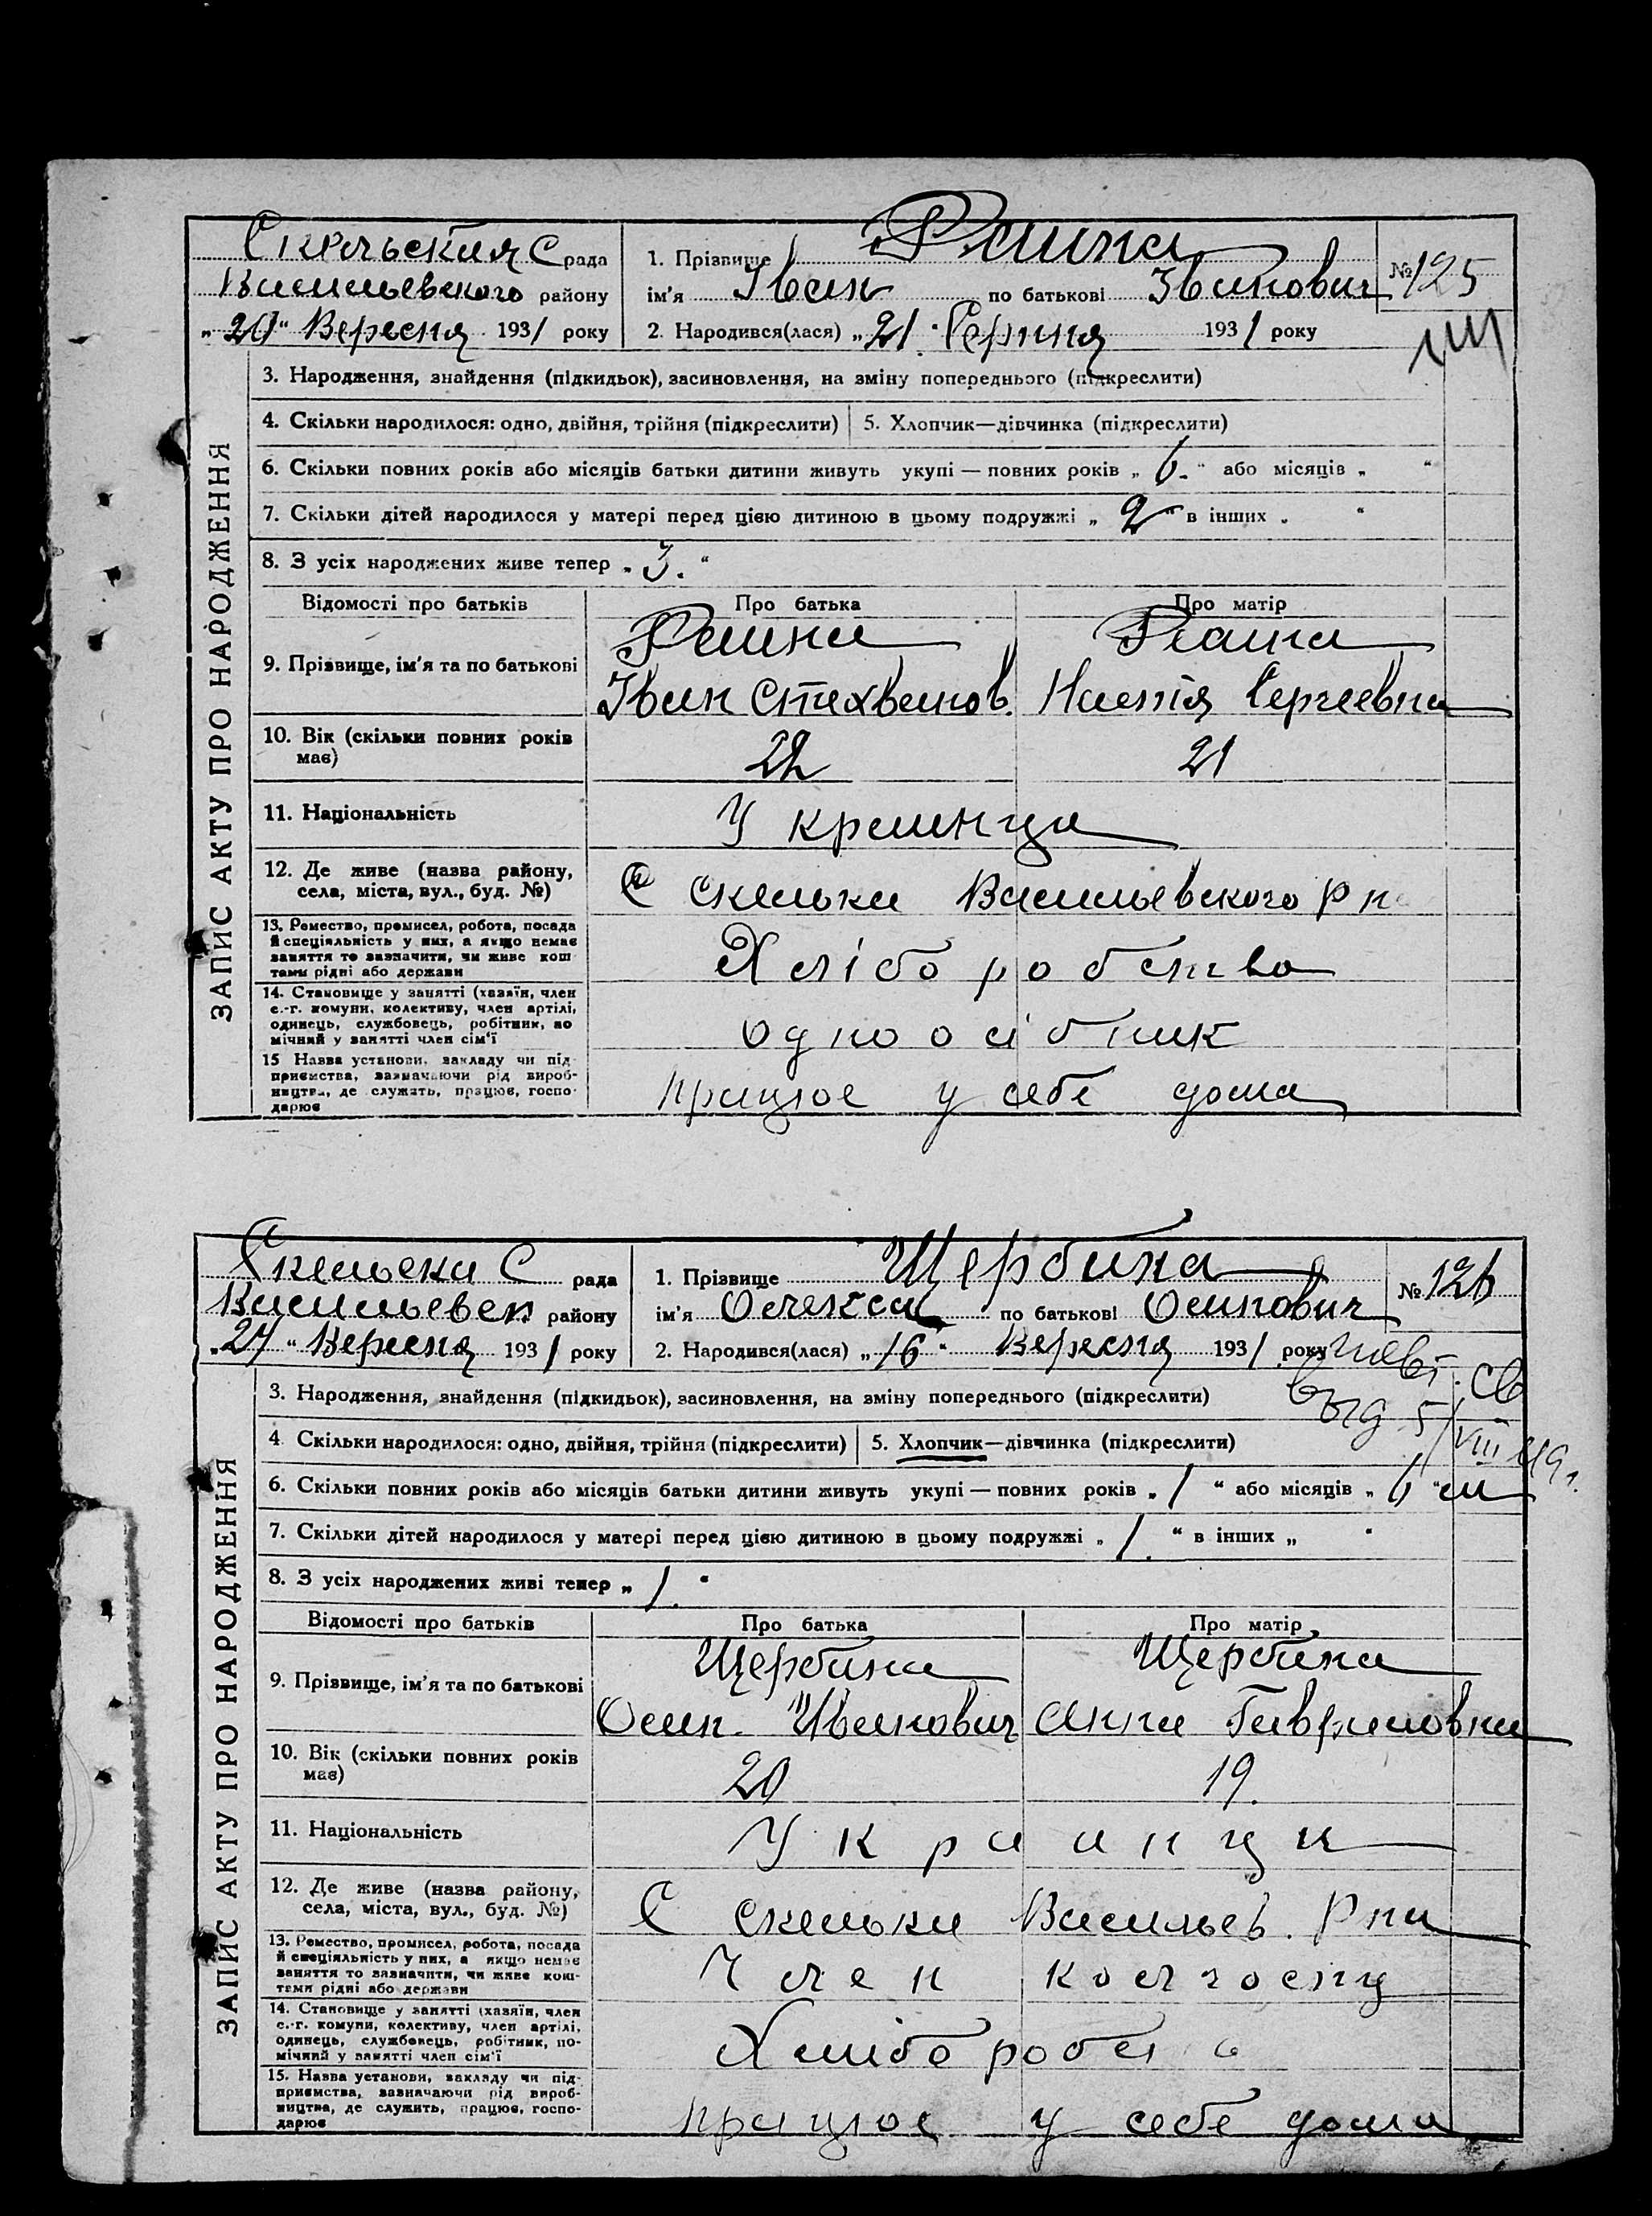 Скельская С рада
Васильевского району
„20“ Вересня 1931 року
1. Прізвище
ім'я Іван по батькові Іванович
2. Народився(лася) „21“ Серпня 1931 року
№ 125
ЗАПИС АКТУ ПРО НАРОДЖЕННЯ
3. Народження, знайдення (підкидьок), засиновлення, на зміну попереднього (підкреслити)
4. Скільки народилося: одно, двійня, трійня (підкреслити) 5. Хлопчик—дівчинка (підкреслити)
6. Скільки повних років або місяців батьки дитини живуть укупі — повних років „6.“ або місяців „ “
7. Скільки дітей народилося у матері перед цією дитиною в цьому подружжі „2“ в інших „ “
8. З усіх народжених живе тепер „3.“
Відомості про батьків Про батька Про матір
9. Прізвище, ім'я та по батькові
Іван Сергеевна
10. Вік (скільки повних років має) 22 21
11. Національність Украинци
12. Де живе (назва району, села, міста, вул., буд. №) С Скельки Васильевского р на
13. Ремество, промисел, робота, посада й спеціяльність у них, а якщо немає заняття то зазначити, чи живе коштами рідні або держави
Хлібо робство
14. Становище у занятті (хазяїн, член с.-г. комуни, колективу, член артілі, одинець, службовець, робітник, помічний у занятті член сім'ї
одноосібник
15 Назва установи, закладу чи підприємства, зазначаючи рід виробництва, де служить, працює, господарює
працює у себе дома
Скельска С рада
Васильевск району
„27“ Вересня 1931 року
1. Прізвище Щербина
ім'я Олекса по батькові Осипович
2. Народився(лася) „16“ Вересня 1931 року
№ 126
повт. св
выд 5/VIII 49 г.
ЗАПИС АКТУ ПРО НАРОДЖЕННЯ
3. Народження, знайдення (підкидьок), засиновлення, на зміну попереднього (підкреслити)
4 Скільки народилося: одно, двійня, трійня (підкреслити) 5. Хлопчик—дівчинка (підкреслити)
6. Скільки повних років або місяців батьки дитини живуть укупі — повних років „1“ або місяців „6“ м
7. Скільки дітей народилося у матері перед цією дитиною в цьому подружжі „1.“ в інших „ “
8. З усіх народжених живі тепер „1.“
Відомості про батьків Про батька Про матір
9. Прізвище, ім'я та по батькові Щербина Щербина
Осип. Иванович Анна Гавриловна
10. Вік (скільки повних років має) 20 19.
11. Національність Украинци
12. Де живе (назва району, села, міста, вул., буд. №) С Скельки Васильев. Р на
13. Ремество, промисел, робота, посада й спеціяльність у них, а якщо немає заняття то зазначити, чи живе коштами рідні або держави
Член колгоспу
14. Становище у занятті (хазяїн, член с.-г. комуни, колективу, член артілі, одинець, службовець, робітник, помічний у занятті член сім'ї
15. Назва установи, закладу чи підприємства, зазначаючи рід виробництва, де служить, працює, господарює
працює у себе дома